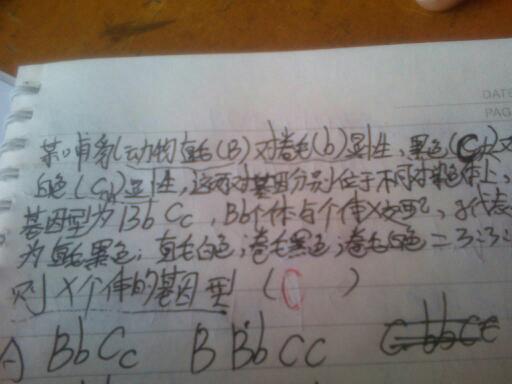 DATE
PAG
某哺乳动物直毛(B)对卷毛(b)显性,黑色(C)对
白色(c)显性,这两对基因分别位于不同对染色体上,
基因型为BbCc,Bb个体与个体X交配,子代表
为直毛黑色,直毛白色,卷毛黑色,卷毛白色=3:3:
则X个体的基因型( )
A BbCc B Bb CC C bbCc